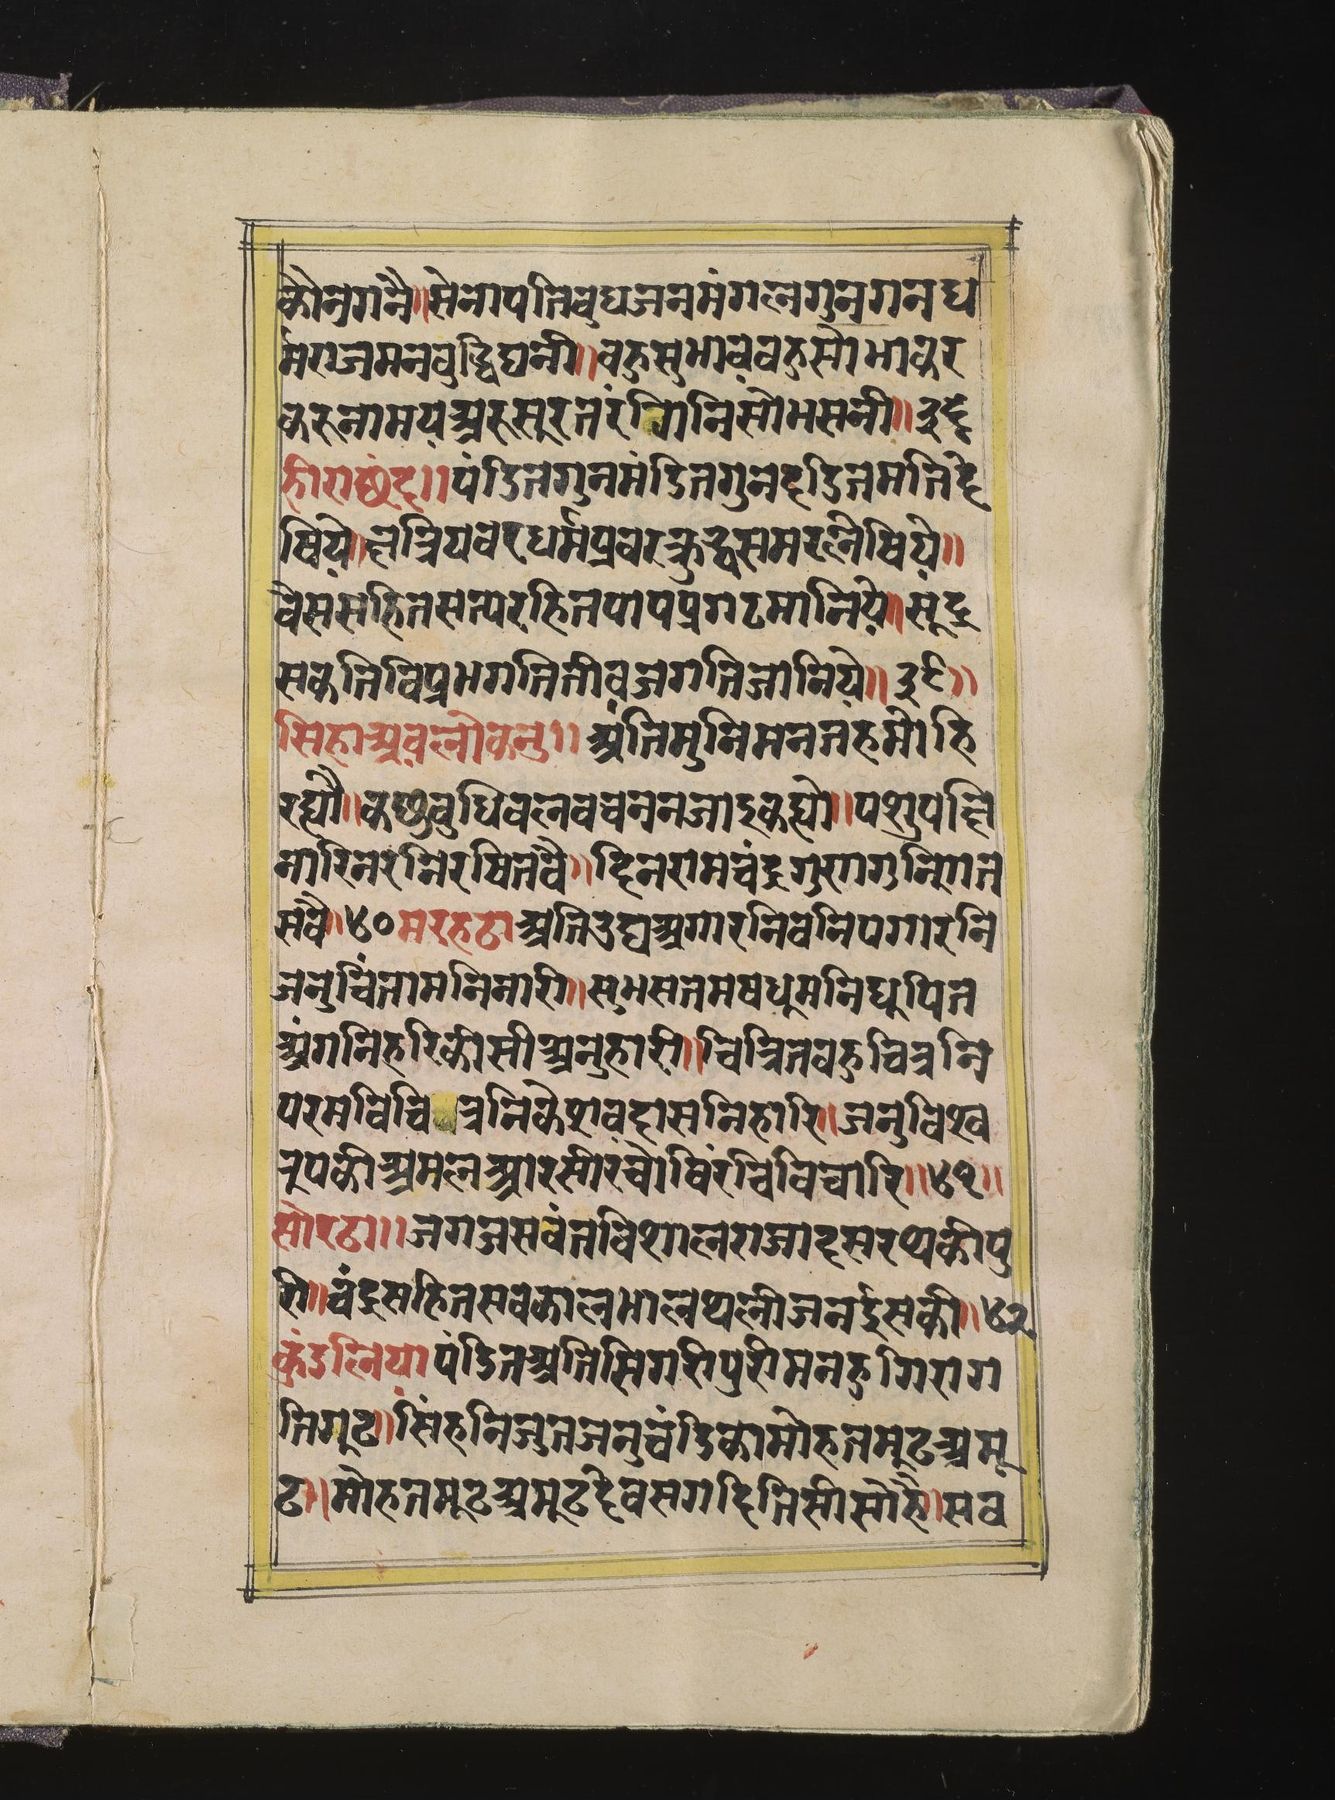 कौनगनै॥सेनापतिबुधजनमंगलगुनगनध
र्मराजमनबुद्धिघनी॥बहुसुभावबहुसोभाकर
करुनामयअरुसुरतरंगिनिसोभसनी॥३८
हीराछंद॥पंडितगुनमंडितगुनदंडितमतिदे
षिये॥छत्रियबरधर्मप्रवरक्रुद्धसमरलेषिये॥
वैससहितसत्यरहितपापप्रगटमानिये॥सूद्र
सकतिविप्रभगतिजीवजगतिजानिये॥३९॥
सिंहाअवलोकनु॥अंतिमुनिमनतहमोहि
रह्यौ॥कछुबुधिबलबचननजाइकह्यो॥पशुपछि
नारिनरनिरषितबै॥दिनरामचंद्रगुणगनिगनत
सबै॥४०मरहठाअतिउच्चअगारनिबनिपगारनि
जनुचिंतामनिनारी॥सुभसतमषधूमनिधूपित
अंगनिहरिकीसीअनुहारी॥चित्रितबहुचित्रनि
परमविचित्रनिकेशवदासनिहारि॥जनुविश्व
रूपकीअमलआरसीरचीबिरंचिविचारि॥४१॥
सोरठा॥जगजसवंतविशालराजादसरथकीपु
री॥चंद्रसहितसबकालभालथलीजनईसकी॥४२
कुंडलिया पंडितअतिसिगरीपुरीमनहुगिराग
तिगूढ॥सिंहनिजुतजनुचंडिकामोहतमूढअमू
ढ॥मोहतमूढअमूढदेवसगदितिसीसोहै॥सब